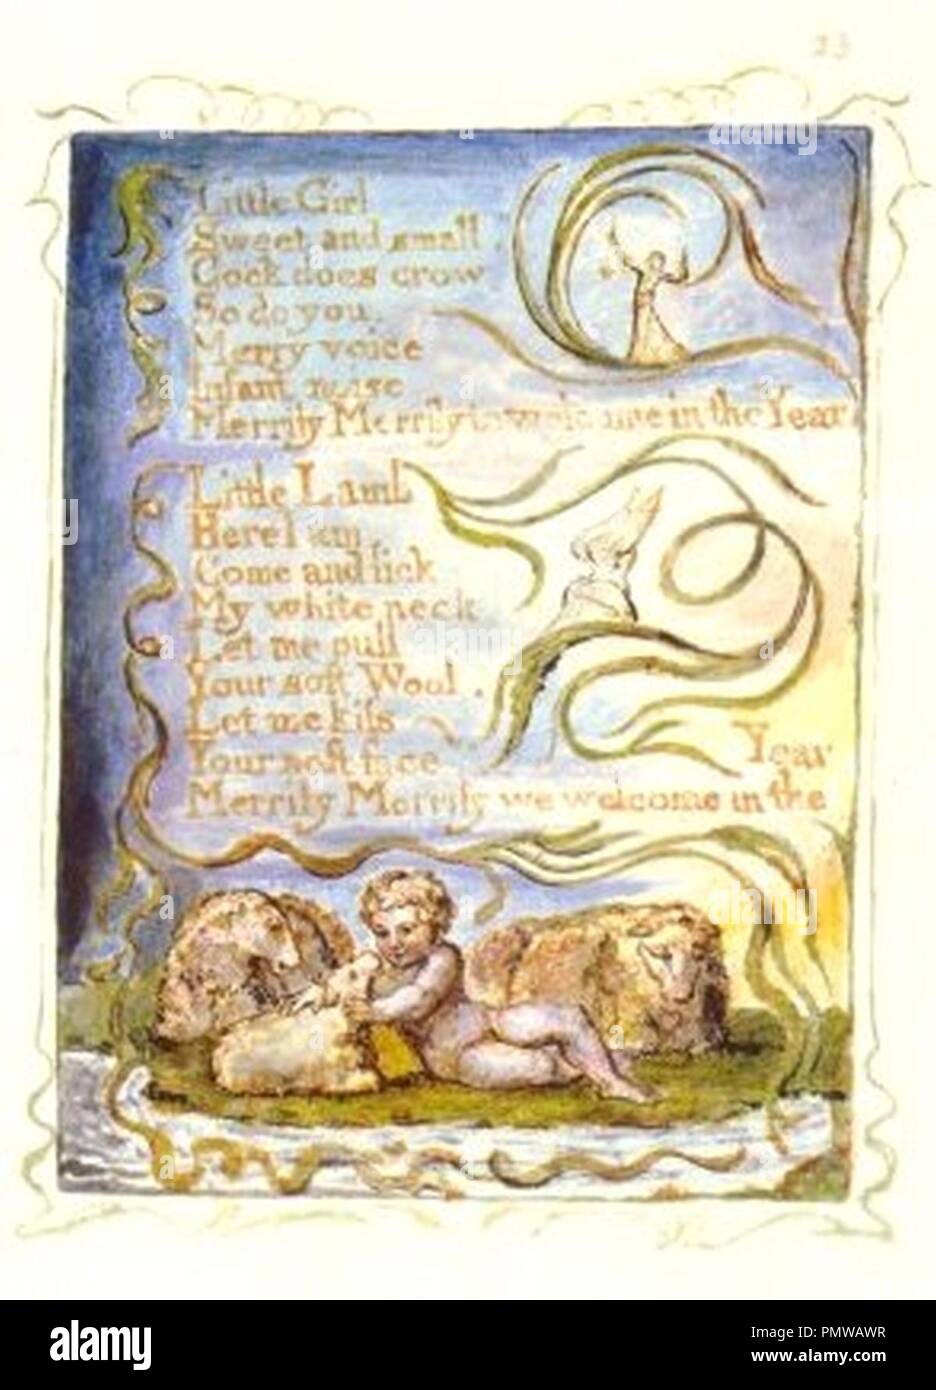 23
Little Girl
Sweet and small
Cock does crow
So do you
Merry voice
Infant noise
Merrily Merrily to welcome in the Year
Little Lamb
Here I am,
Come and lick
My white neck
Let me pull
Your soft Wool.
Let me kiſs
Your soft face
Merrily Merrily we welcome in the
Year
alamy
Image ID: PMWAWR
www.alamy.com